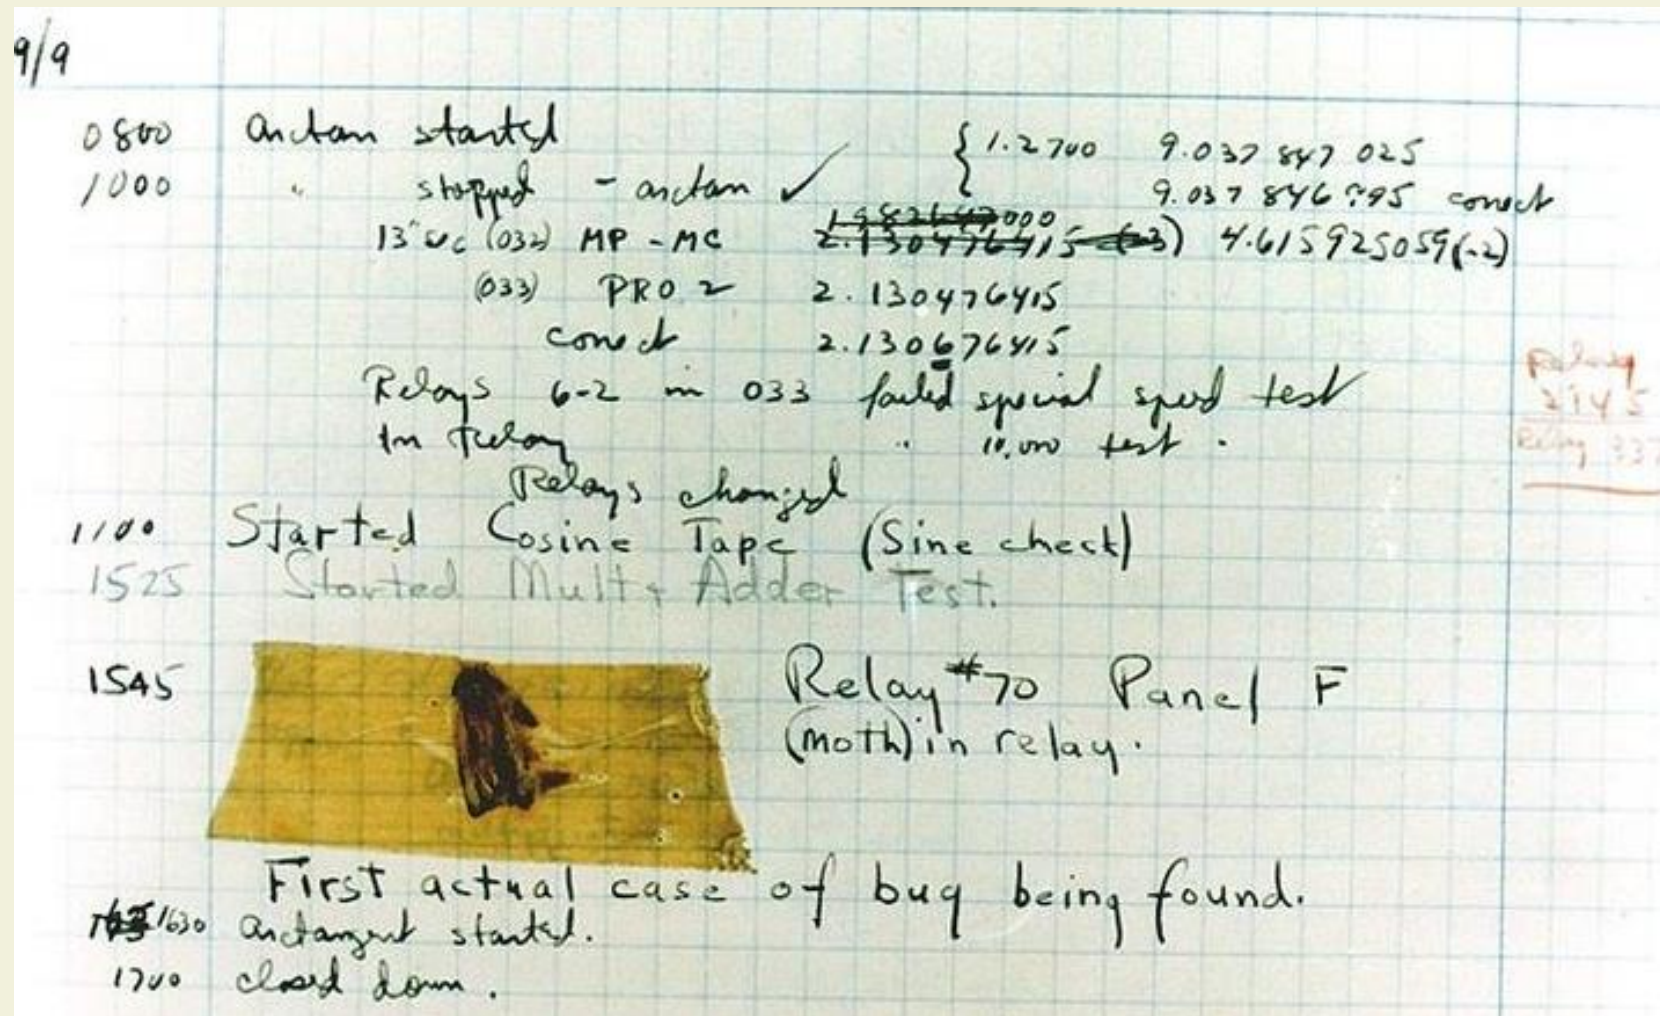 9/9
0800 arctan started {1.2700 9.037 847 025
1000 " stopped - arctan ✓ 9.037 846 995 correct
000
13" sec (032) MP - MC 2.130476415 (-3) 4.615925059(-2)
(033) PRO 2 2.130476415
correct 2.130676415
Relays 6-2 in 033 failed special speed test
In relay " 10,000 test .
Relay
2145
Relay 337
Relays changed
1100 Started Cosine Tape (Sine check)
1525 Started Mult + Adder Test.
1545 Relay #70 Panel F
(moth) in relay.
First actual case of bug being found.
1630 arctangent started.
1700 closed down.